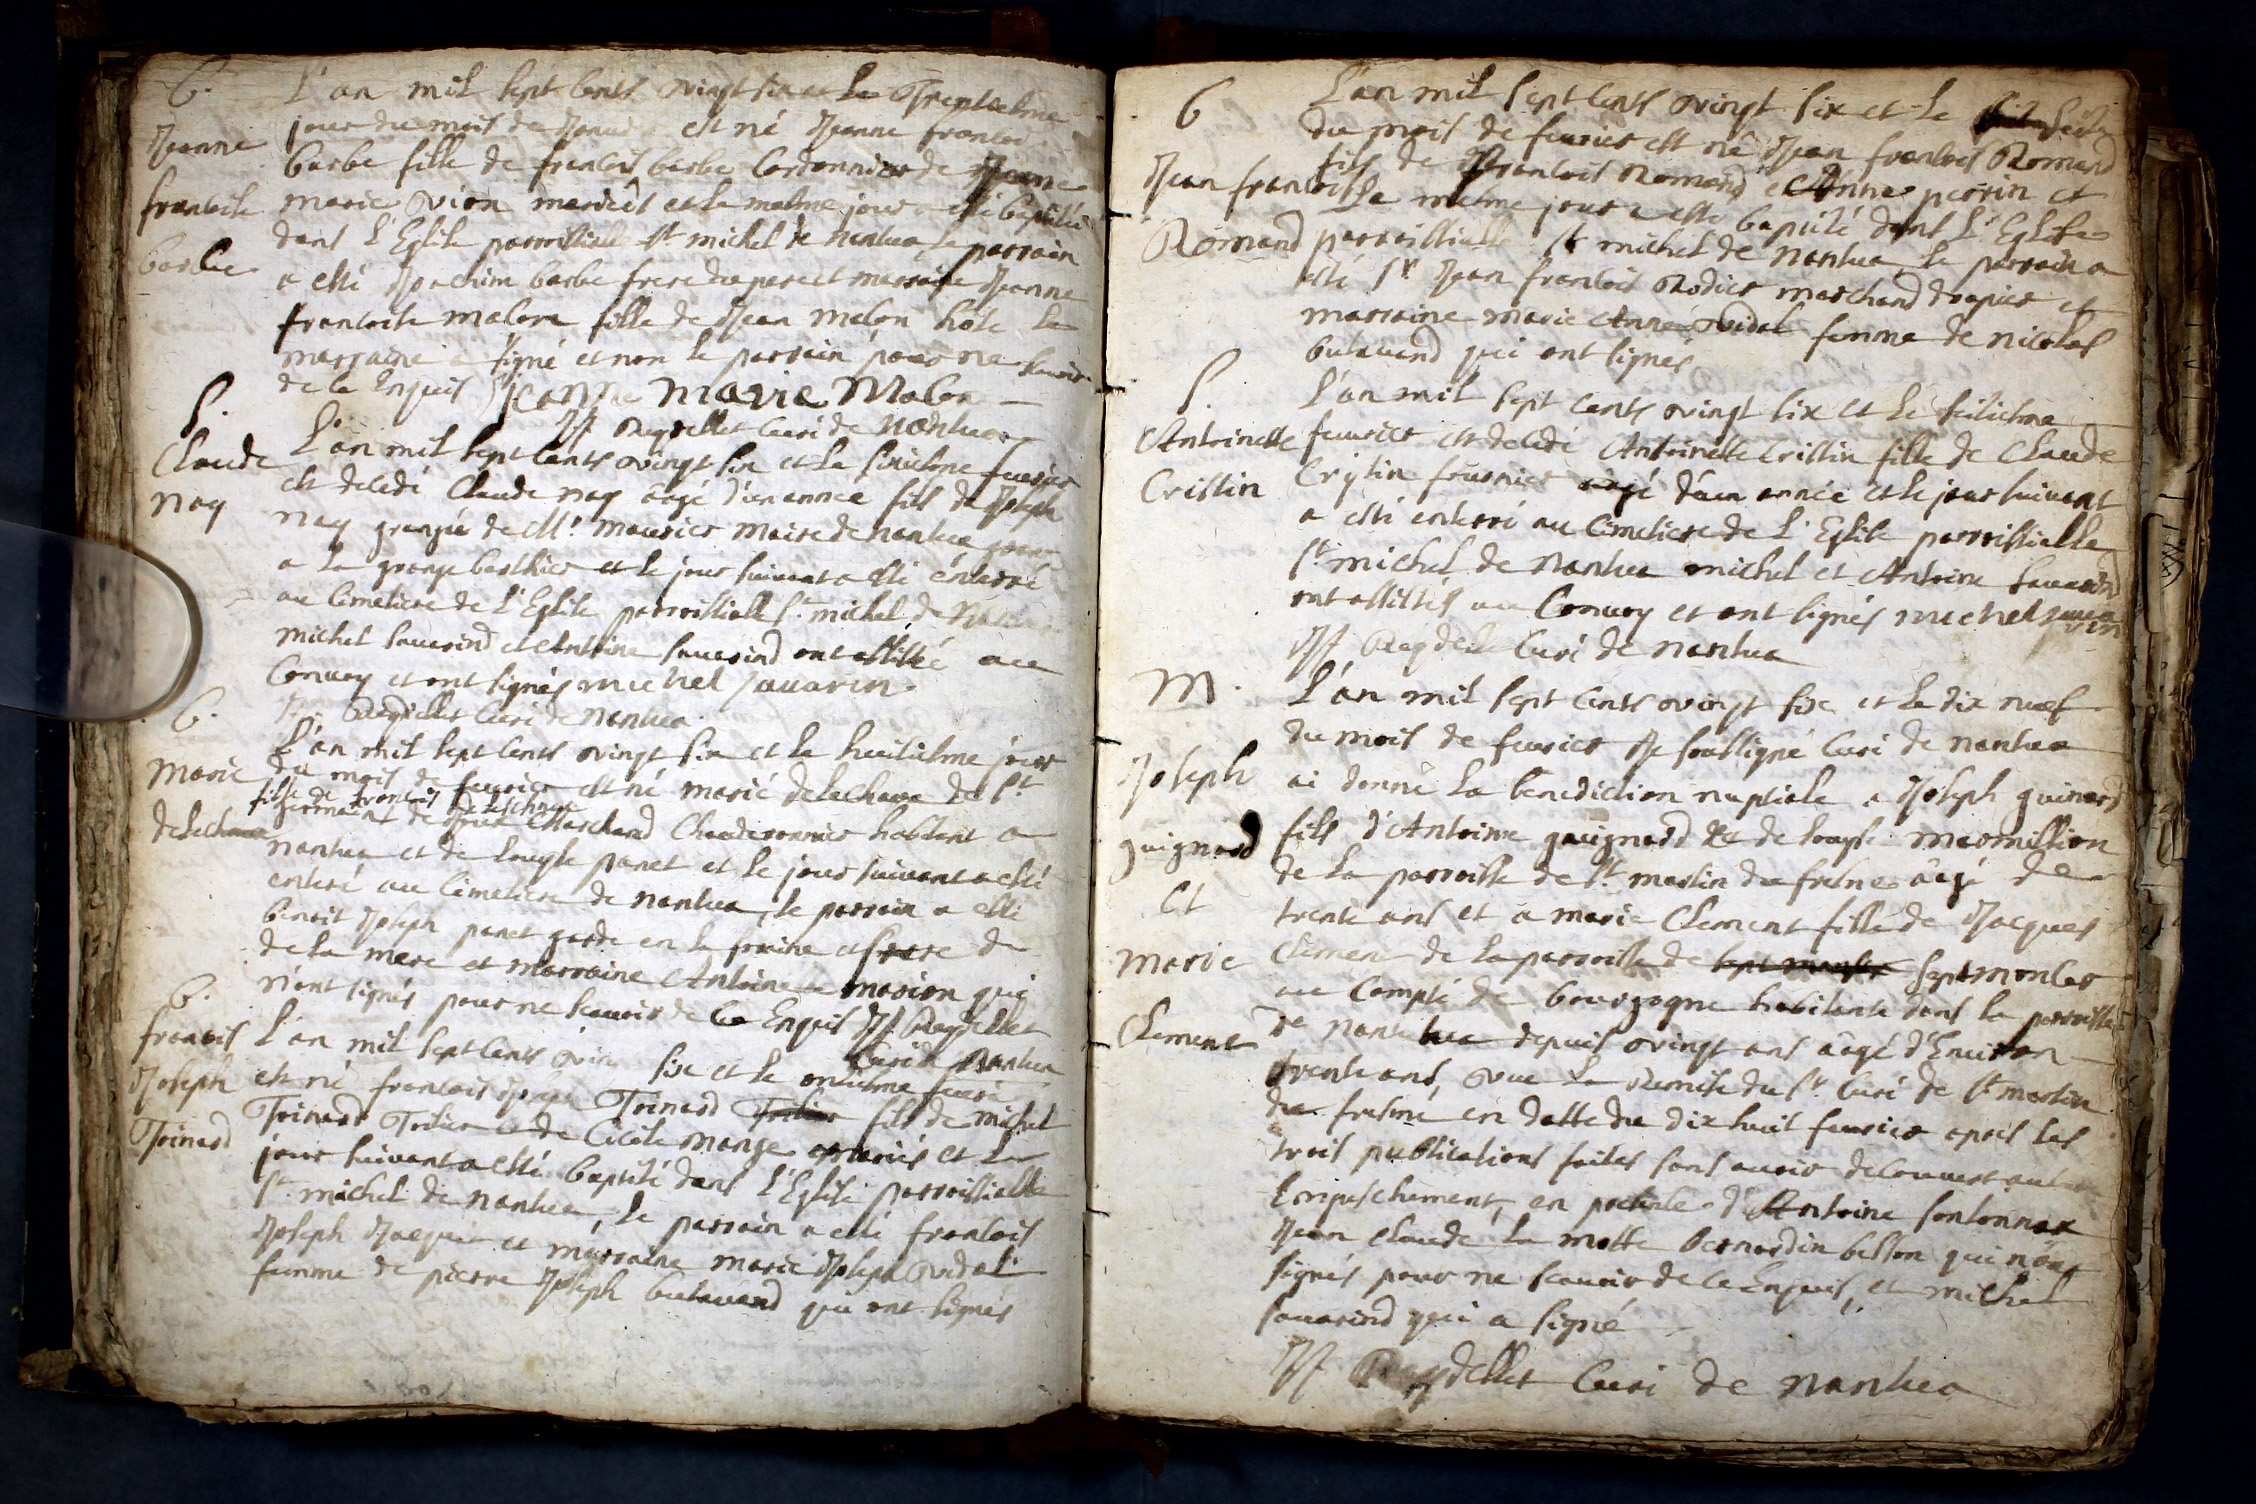 B.
Jeanne
francoise
barbe
L'an mil sept cents vingt six et le Trentiesme
jour du mois de Janvi est né Jeanne francoi
barbe fille de francois barbe Cordonnier de Jeane
marie vion mardeit et le mesme jour a esté baptisée
dans l'Eglise parroissialle St michel de nantua le parrain
a esté Joachim barbe frere du pere et marraine Jeanne
francoise malon fille de Jean malon hôte la
marraine a signé et non le parrain pour ne scavoir
de ce Enquis Jeanne Marie Malon
JJ Reydellet Curé de nantua
S.
Claude
nay
L'an mil sept cents vingt six et le sixiesme feurier
est decedé Claude nay aagé d'un année fils de Joseph
nay grangié de Mr. maurier maire de nantua
a la grange berthier et le jour suivant a esté enterré
au Cimetiere de l'Eglise parroissialle St. michel de nantua
michel sauarind et Antoine sauarind ont assisté au
Conuoy et ont signés michel sauarin.
JJ. Reydellet Curé de nantua.
B.
Marie
delechaux
L'an mil sept cents vingt six et le huitiesme jour
du mois de feurier est né marie delechaux de St
fille de francois delechaux
germain de Joux Marchand Chauderonnier habitant a
nantua et de Louyse panet et le jour suiuant a esté
enterré au Cimetiere de nantua, le parrain a esté
benoit Joseph panet garde en la fraine et frere de
de la mere et marraine Antoine marion qui
n'ont signés pour ne scauoir de ce Enquis JJ. Reydellet
Curé de Nantua
B.
francois
Joseph
Toinard
L'an mil sept cents vin six et le onziesme feuri
est né francois Joseph Toinard fils de michel
Toinard Tistier de Cicile mange mariés et le
jour suiuant a esté baptisé dans l'Eglise parroissialle
St. michel de nantua, le parrain a esté francois
Joseph Jacquet et marraine marie Joseph vidal
femme de pierre Joseph butauand qui ont signés
B
Jean francois
Romand
L'an mil sept cents vingt six et le seize
du mois de feurier est né Jean francois Romand
fils de francois Romand et Anne perrin et
le mesme jour a esté baptisé dans l'Eglise
parroissialle St michel de nantua le parrain a
esté Sr. Jean francois Rodier marchand drapier et
marraine marie Anne vidal femme de nicolas
butauand qui ont signés
S.
Antoinette
Cristin
L'an mil sept cents vingt six et le seiziesme
feurier est decedé Antoinette Cristin fille de Claude
Cristin fournier aagé d'un année et le jour suiuant
a esté enterré au Cimetiere de l'Eglise parroissialle
St michel de nantua michel et Antoine sauarind
ont assistés au Conuoy et ont signés michel sauarin
JJ Reydellet Curé de nantua
M.
Joseph
guignard
et
marie
Clement
L'an mil sept cents vingt six et le dix neuf
du mois de feurier Je soussigné Curé de nantua
ai donné la benediction nuptiale a Joseph guinard
fils d'Antoine guignard et de Louyse marmillion
de la parroisse de St. martin du fresne âagé de
trente ans et a marie Clement fille de Jacques
Clement de la parroisse de septmoncel
au Compté de bourgogne habitante dans la parroisse
de nantua depuis vingt ans âagé d'Enuiron
trente ans, vue la remise du Sr. Curé de St martin
du fresne en datte du dix huit feurier apres les
trois publications faites sans auoir decouuert aut
Empeschement, en presence d'Antoine santonnax
Jean Claude la motte bernardin besson qui n'ont
signés pour ne scauoir de ce Enquis, et michel
sauarind qui a signé
JJ Reydellet Curé de nantua